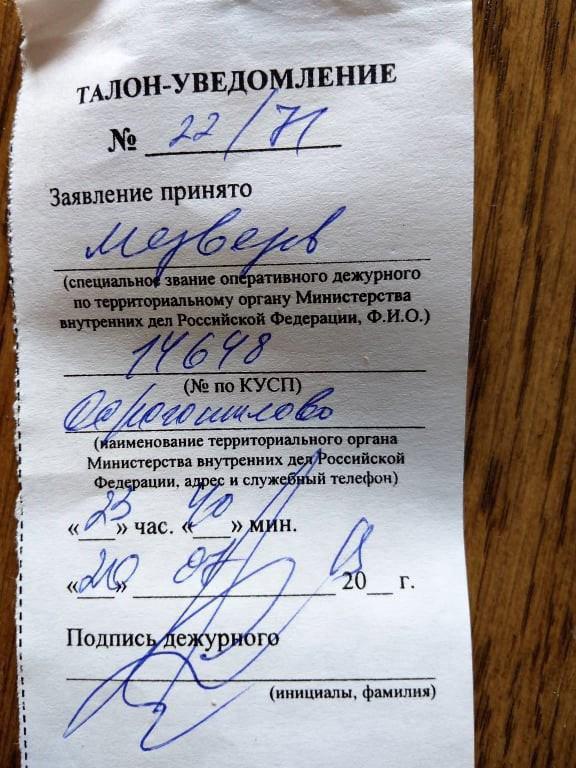 ТАЛОН-УВЕДОМЛЕНИЕ
№ 22/71
Заявление принято
Медведев
(специальное звание оперативного дежурного
по территориальному органу Министерства
внутренних дел Российской Федерации, Ф.И.О.)
14648
(№ по КУСП)
Дорогомилово
(наименование территориального органа
Министерства внутренних дел Российской
Федерации, адрес и служебный телефон)
«23» час. «40» мин.
«20» 07 20 г.
Подпись дежурного
(инициалы, фамилия)